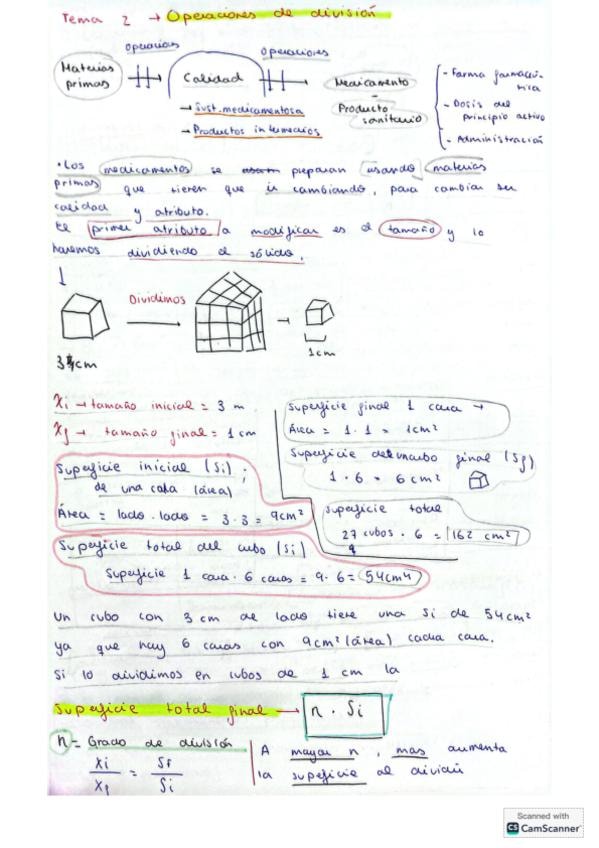 Tema 2 → Operaciones de división
Materias primas
Operacions
Calidad
→ Sust. medicamentosa
→ Productos intermedios
Operaciones
Medicamento
-
Producto sanitario
- Forma farmacéutica
- Dosis del principio activo
- Administración
• Los medicamentos se preparan usando materias
primas que tienen que ir cambiando, para cambiar su
calidad y atributo.
El primer atributo a modificar es el tamaño y lo
haremos dividiendo el sólido.
3 cm
Dividimos
1cm
Xi → tamaño inicial = 3 m
Xf → tamaño final = 1 cm
Superficie inicial (Si);
de una cara (área)
Área = lado . lado = 3·3 = 9cm²
Superficie total del cubo (Si)
Superficie 1 cara · 6 caras = 9·6 = 54cm4
Superficie final 1 cara →
Área = 1·1 = 1cm²
Superficie de un cubo final (Sf)
1·6 = 6 cm²
Superficie total
27 cubos · 6 = 162 cm²
Un cubo con 3 cm de lado tiene una Si de 54cm²
ya que hay 6 caras con 9cm² (área) cada cara.
Si lo dividimos en cubos de 1 cm la
superficie total final → n · Si
n = Grado de división
Xi/Xf = Sf/Si
A mayor n, mas aumenta
la superficie al dividir
Scanned with
CS CamScanner